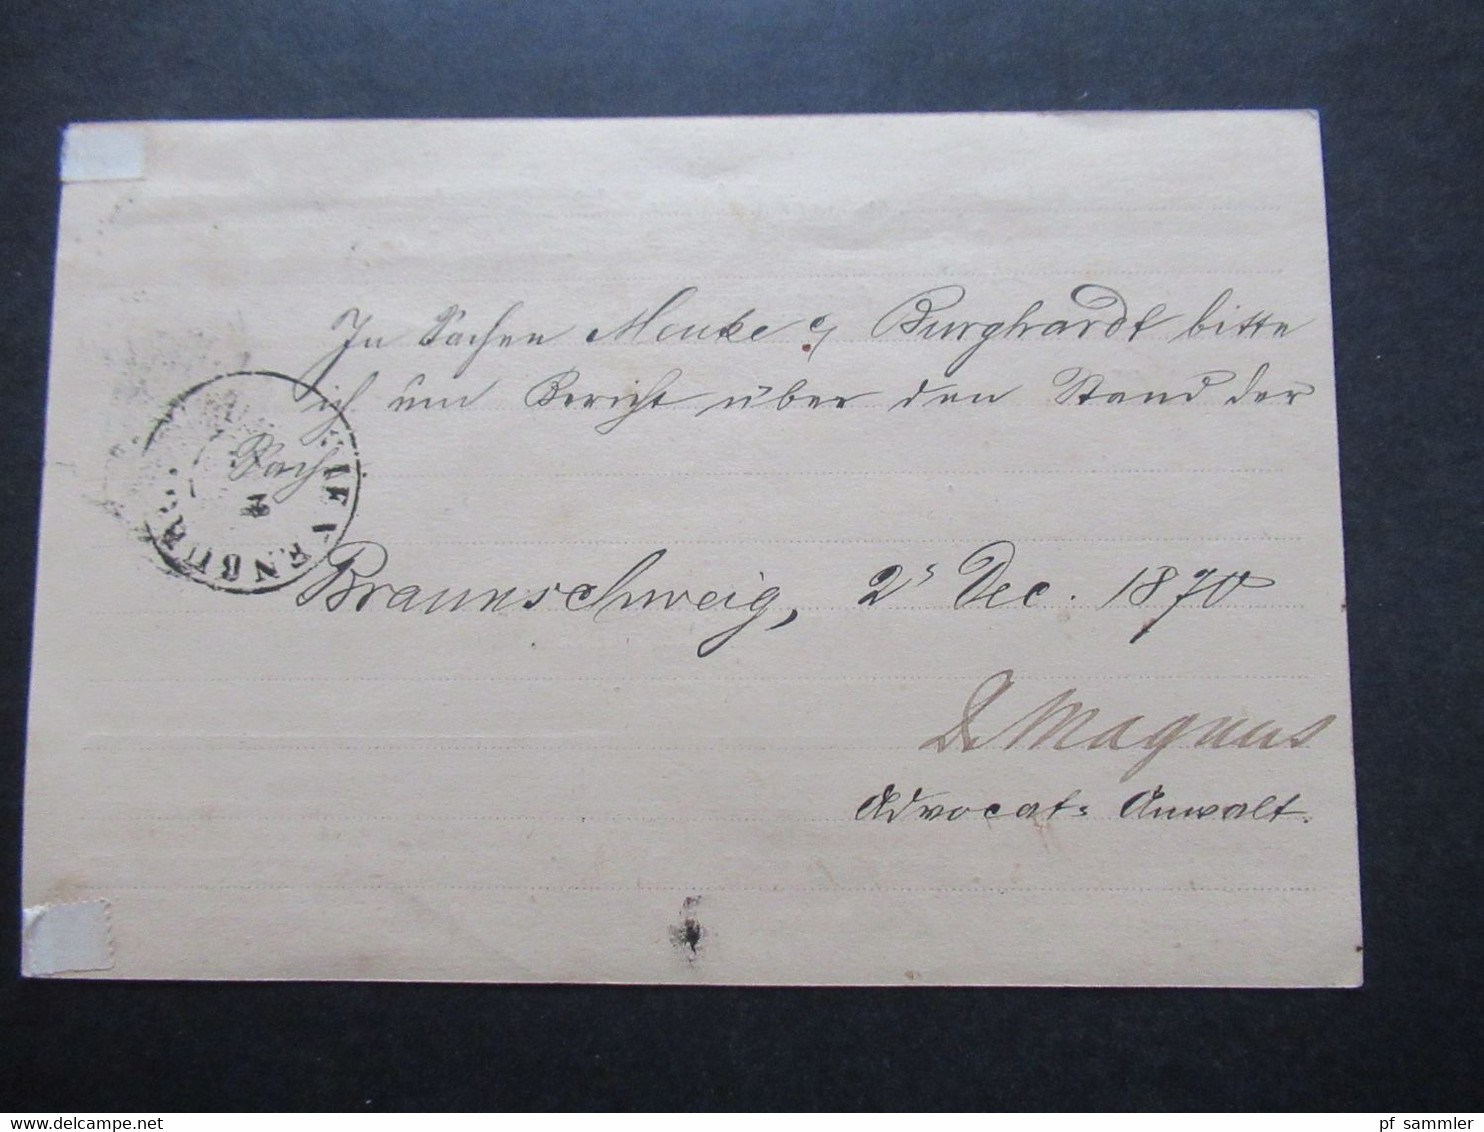 In Sachen Menke c/ Burghardt bitte
ich um Bericht über den Stand der
Sache.
Braunschweig, 2 s Dec. 1870
Dr Magnus
Advocat-Anwalt.
IEVENBURG
pf_sammler